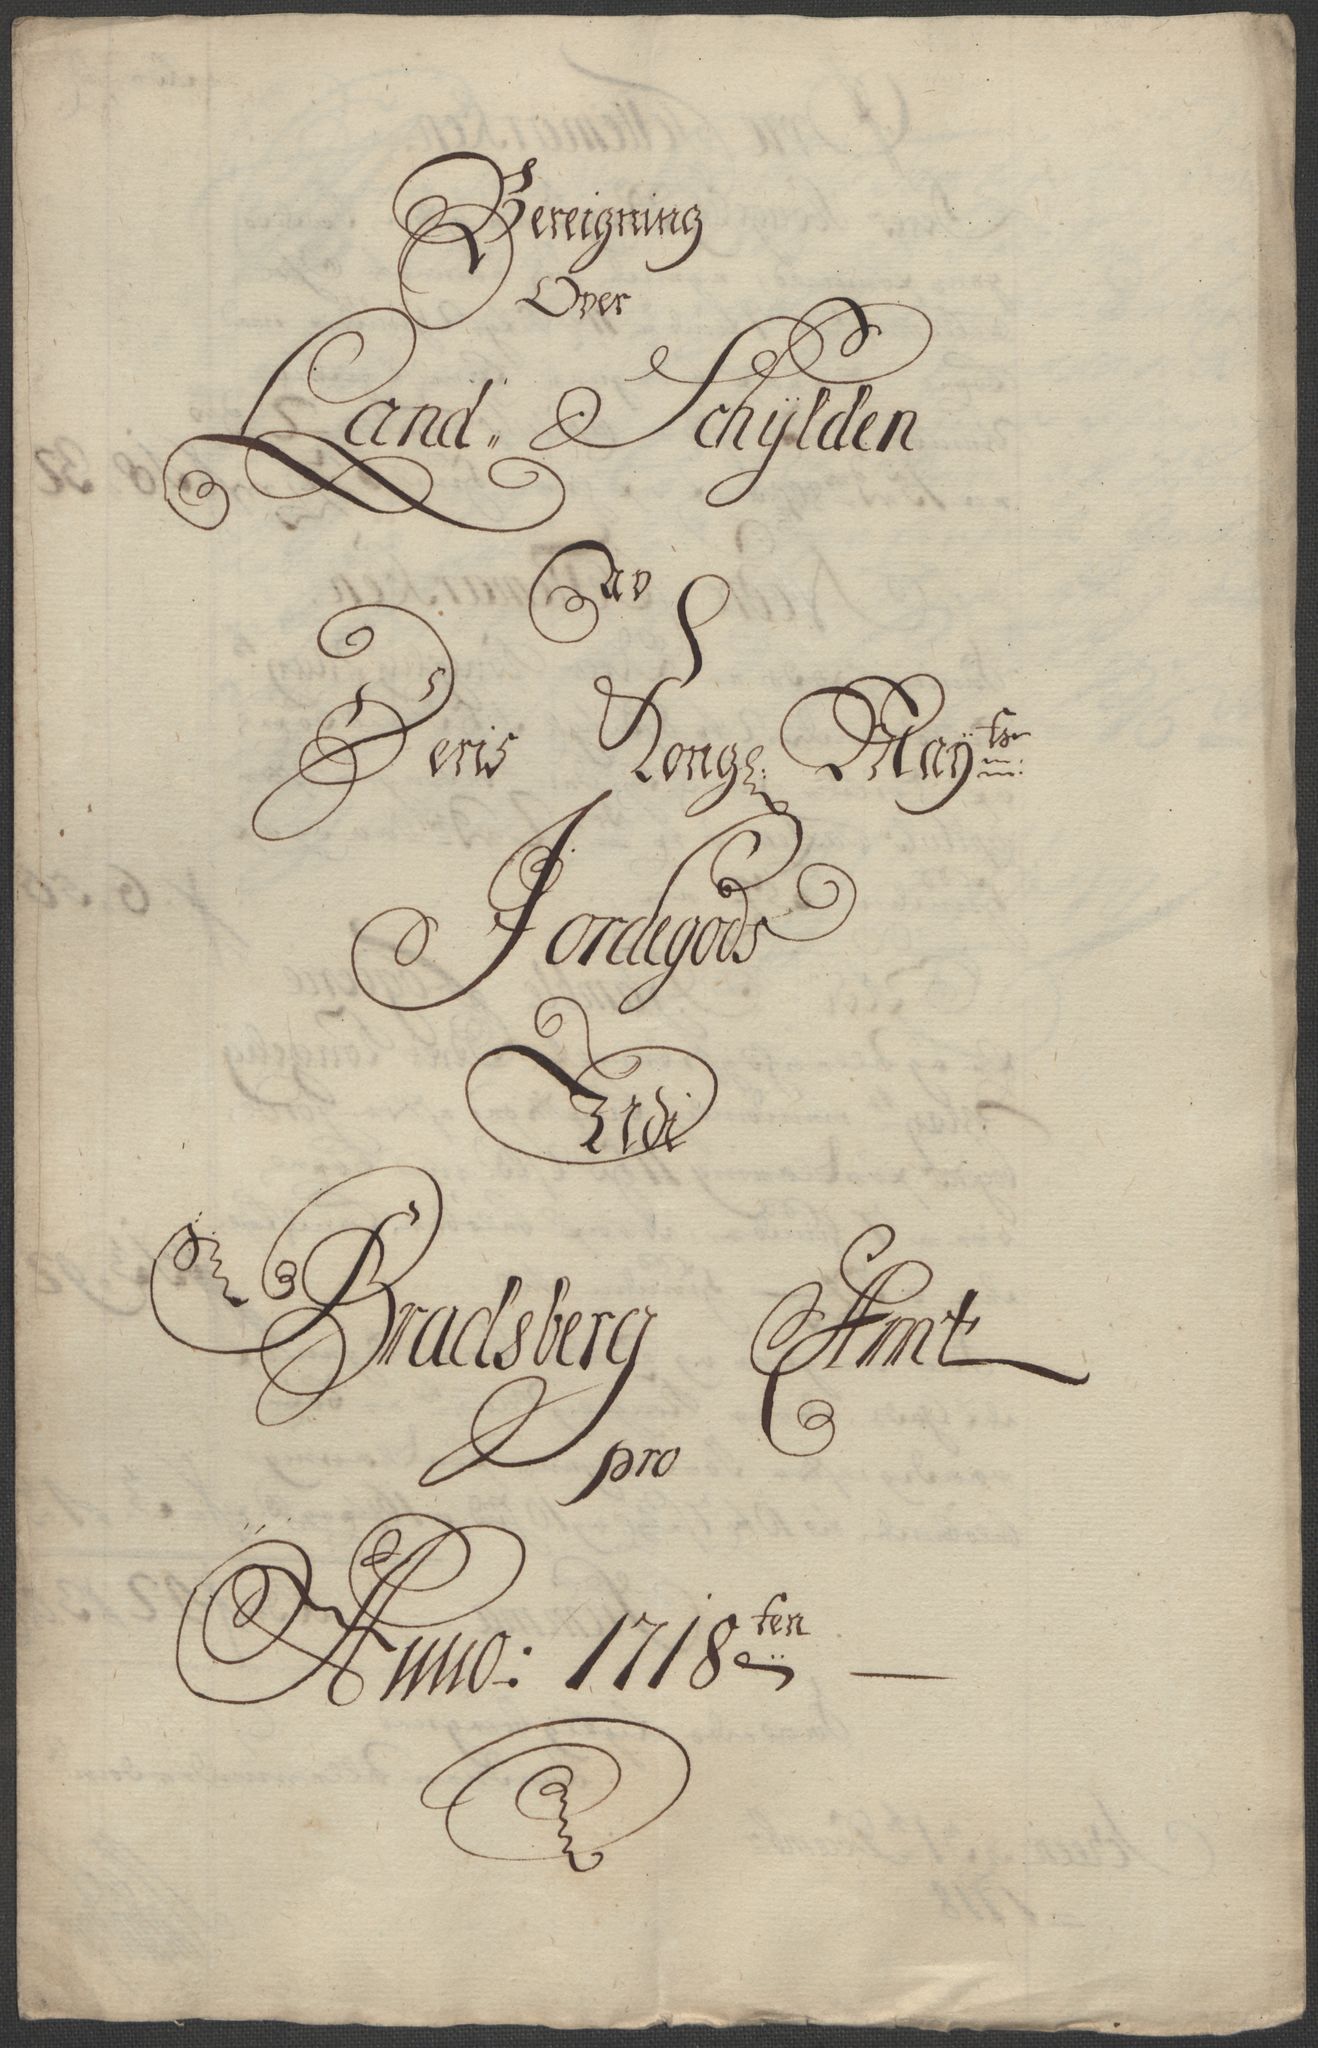 Bereigning
Over
Land„ Schÿlden
av
Deris Kongl: Maÿts
Jordegods
Udi
Bradsberg Amt
pro
Anno: 1718ten